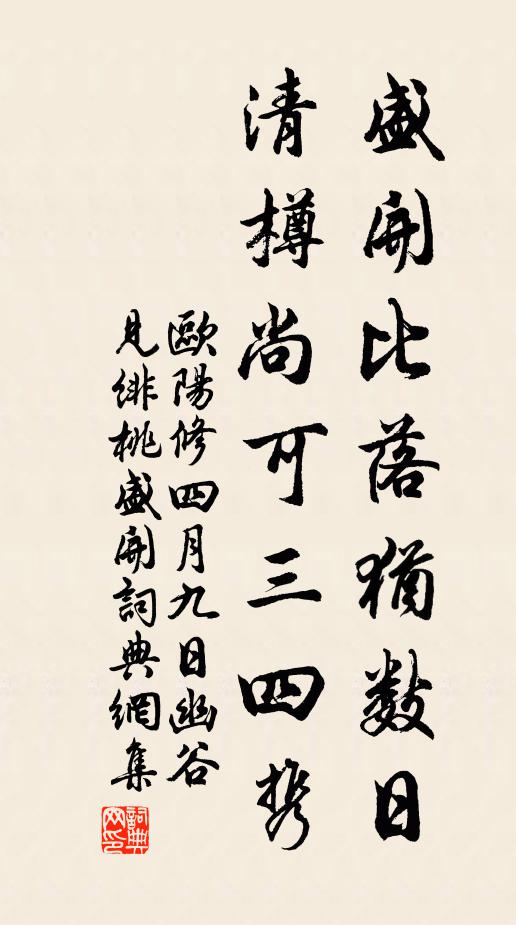 盛開比落猶數日
清樽尚可三四攜
歐陽修四月九日幽谷
見緋桃盛開詞典網集
詞典
网印